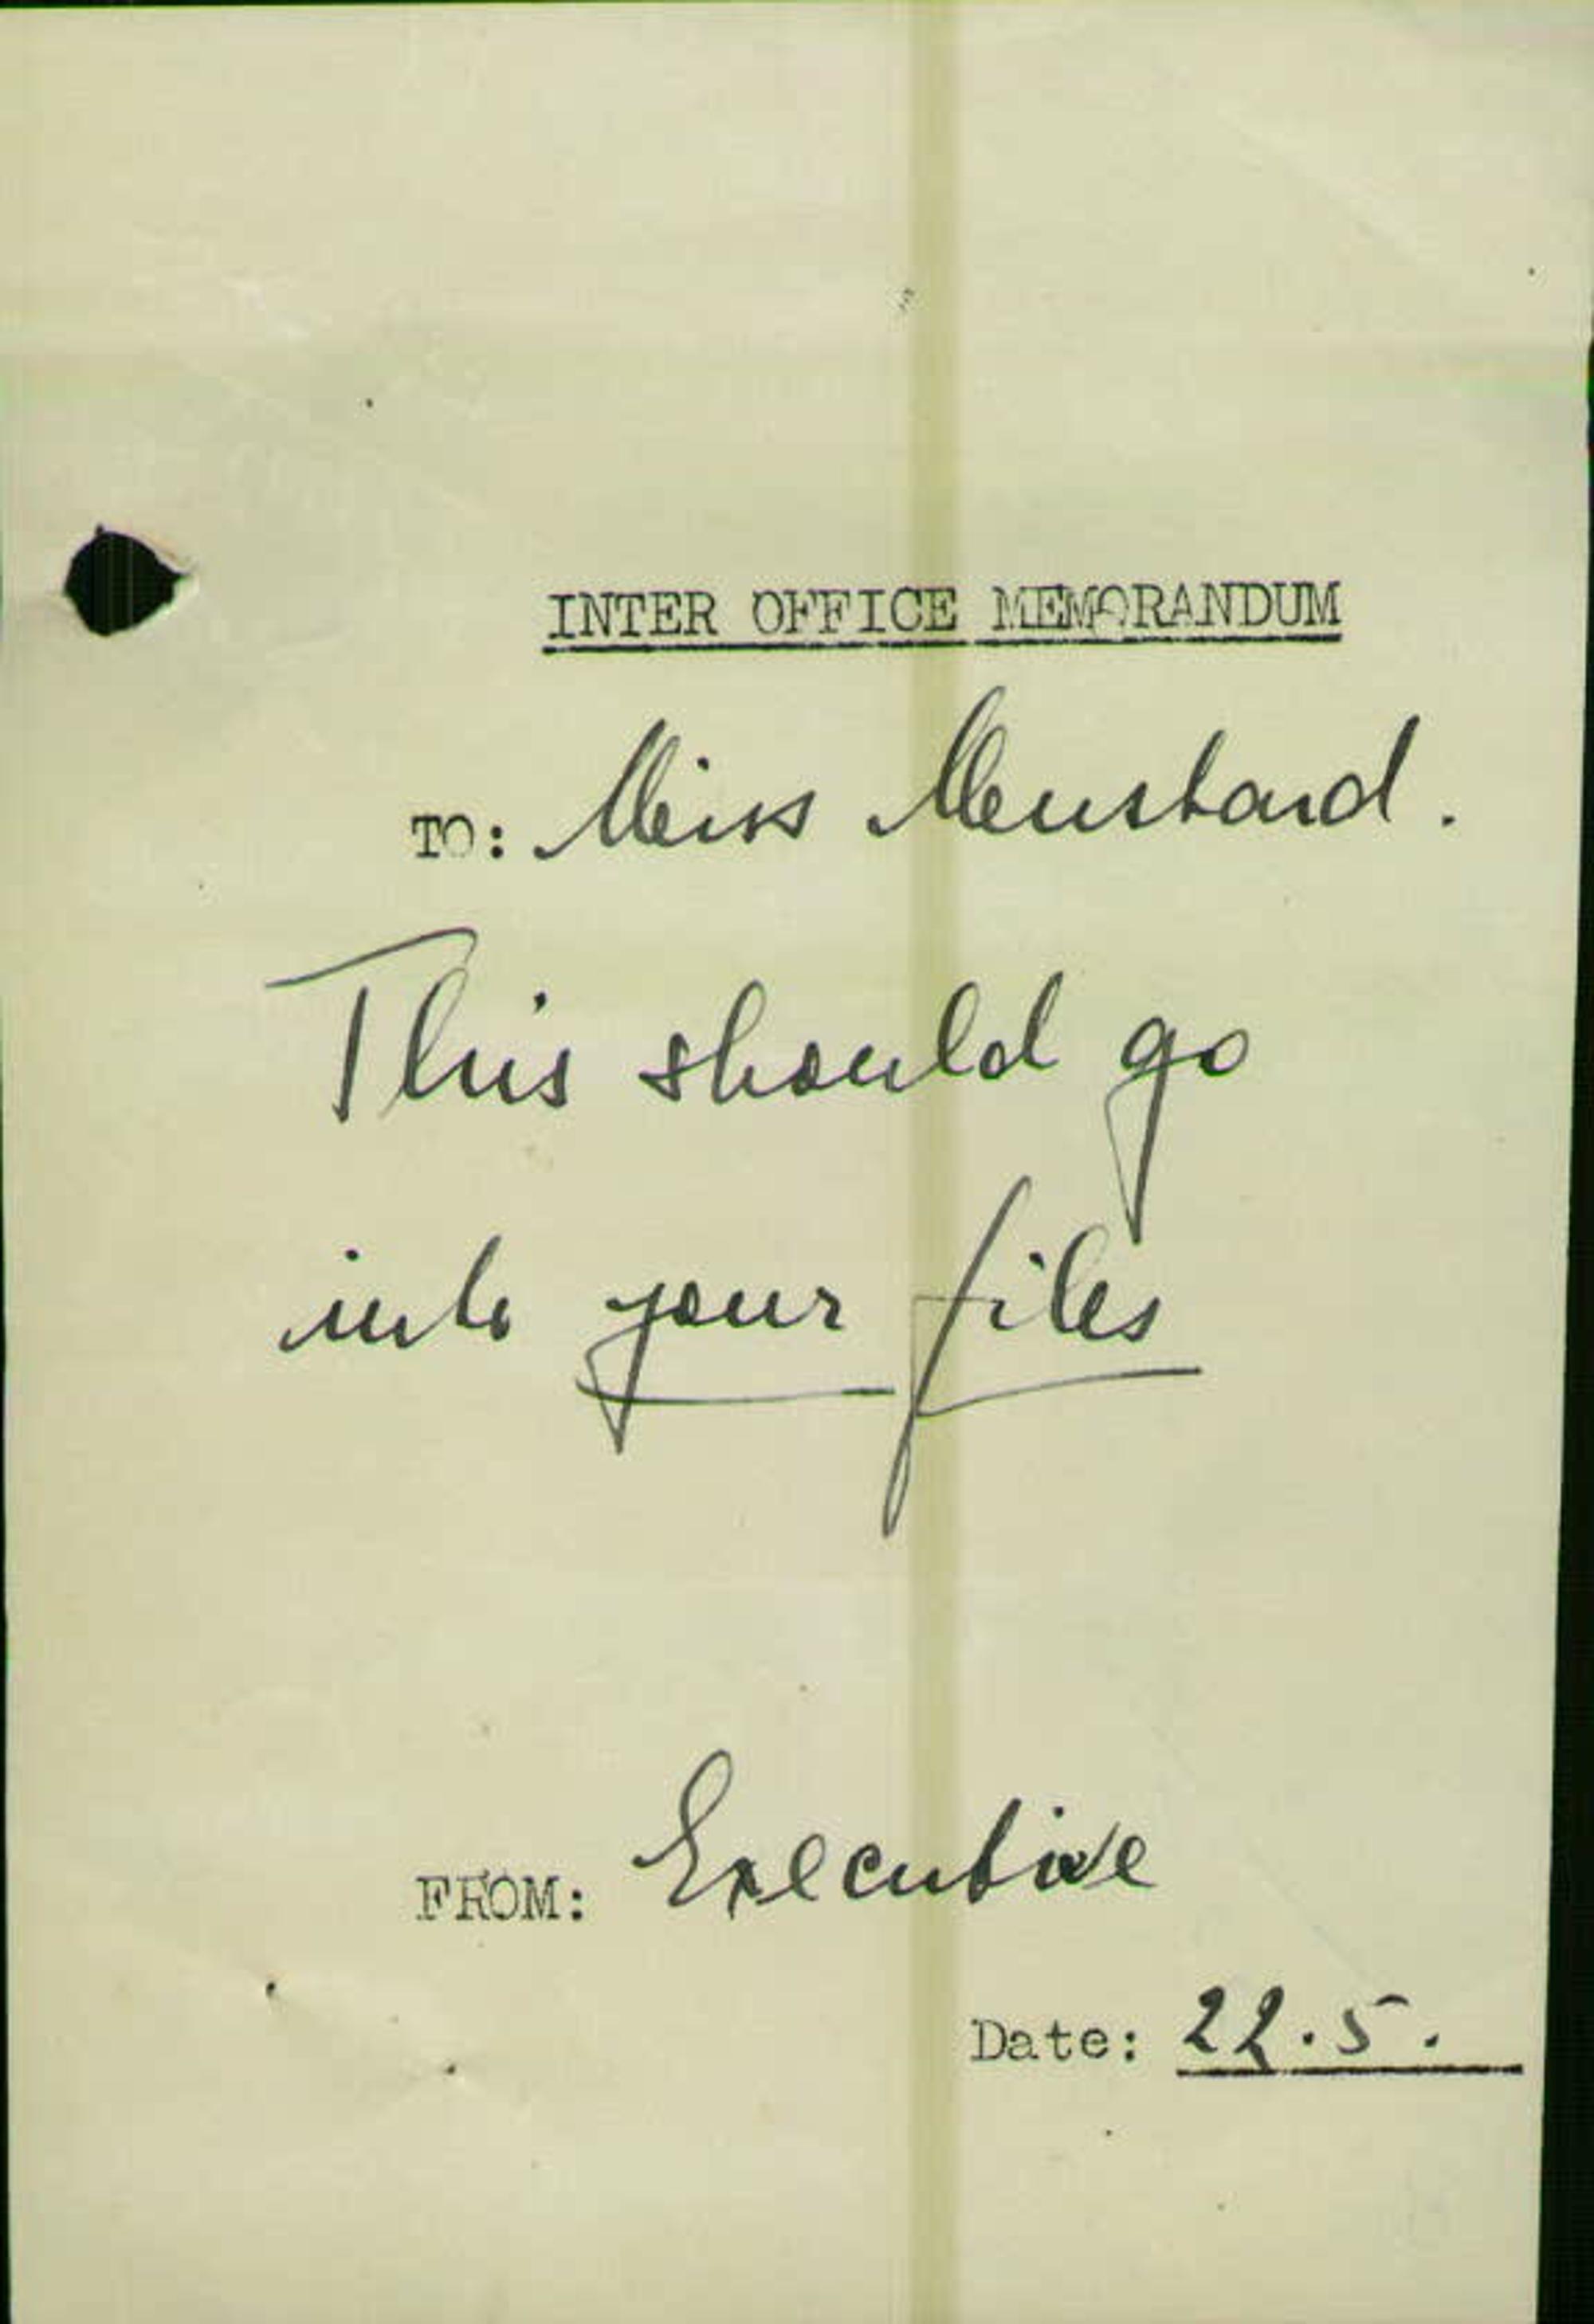 INTER OFFICE MEMORANDUM
TO: Miss Mustard.
This should go
into your files
FROM: Executive
Date: 22.5.